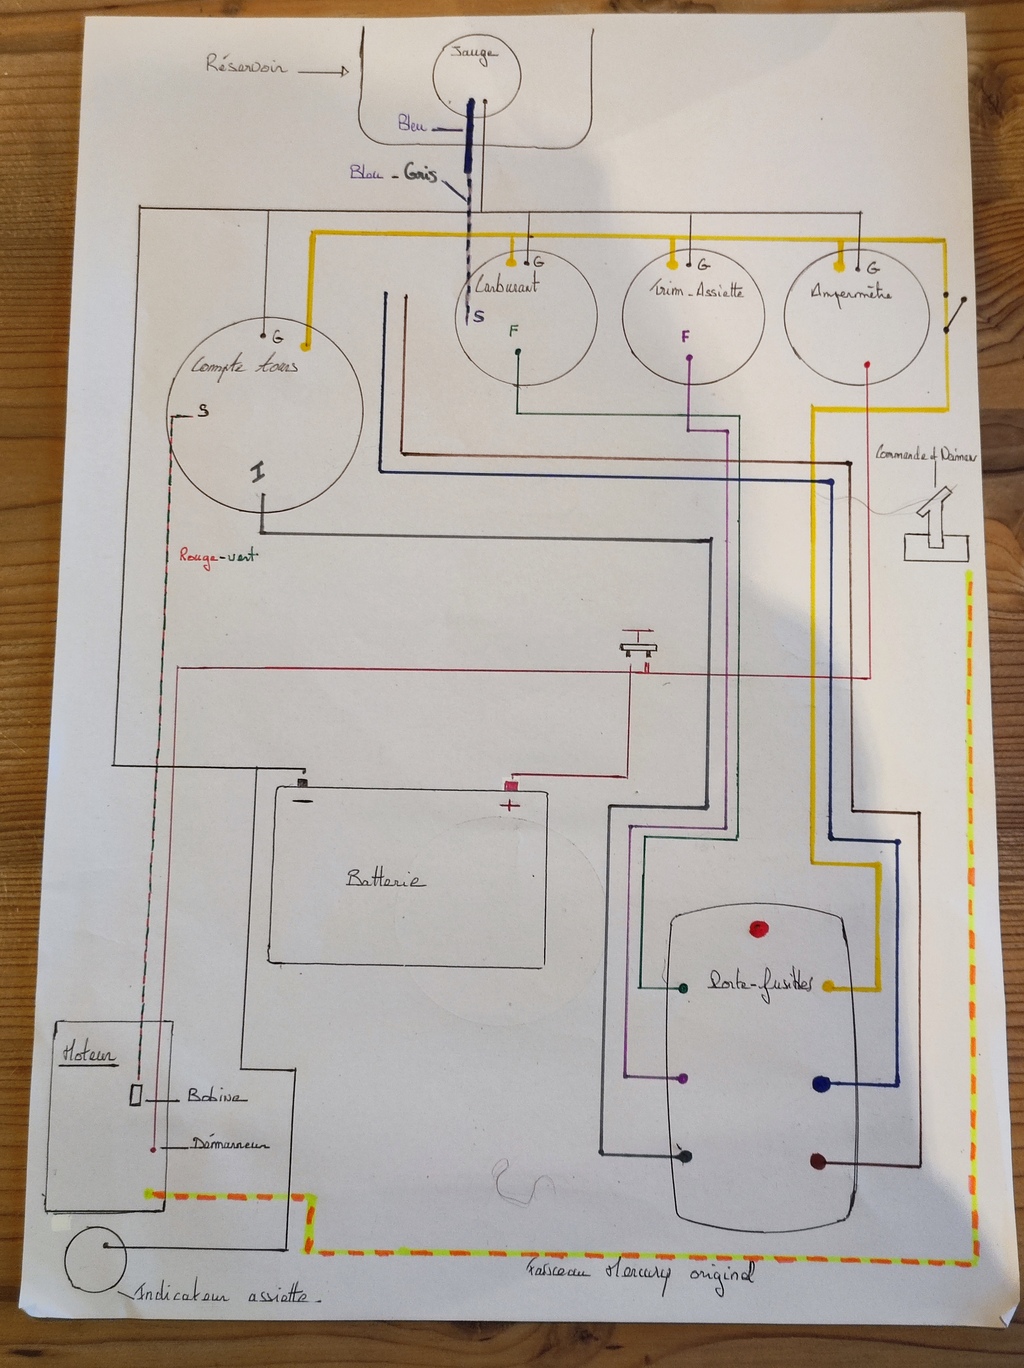 Jauge
Réservoir
Bleu
Bleu - Gris
G
G
G
Carburant
Trim-Assiette
Ampermètre
S
F
F
G
Compte tours
S
I
Commande
Rouge-vert
- +
Batterie
Porte-fusibles
Moteur
Bobine
Démarreur
Faisceau Mercury original
Indicateur assiette.